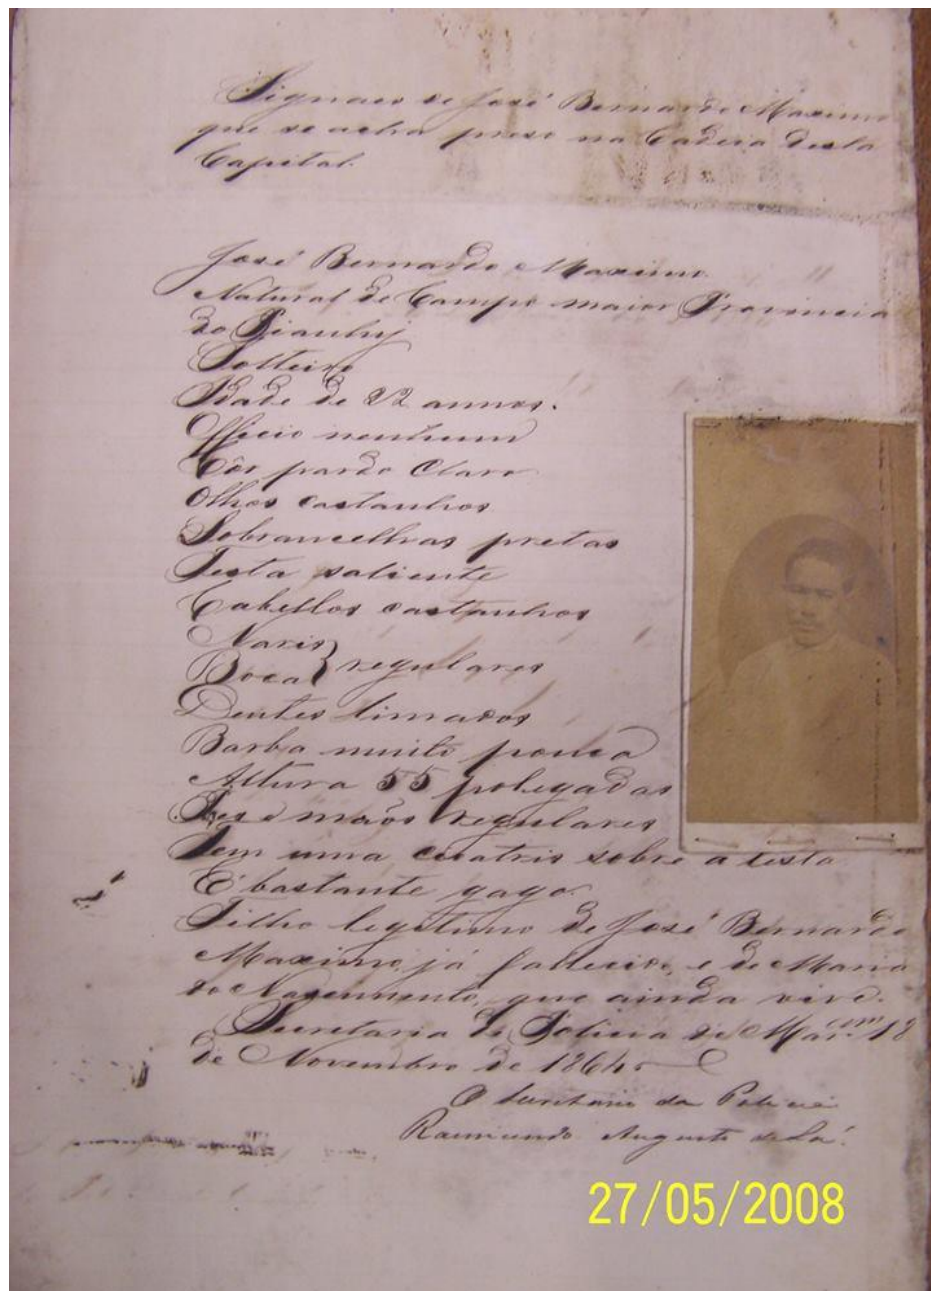 Signaes de José Bernardo Maximo
que se acha preso na Cadeia desta
Capital.
José Bernardo Maximo
Natural de Campo maior Provincia
do Piauhy
Solteiro
Idade de 22 annos.
Officio nenhum
Côr pardo Claro
Olhos castanhos
Sobrancelhas pretas
Testa saliente
Cabellos castanhos
Naris
Boca } regulares
Dentes limados
Barba muito pouca
Altura 55 polegadas
Pes e mãos regulares
Tem uma cicatris sobre a testa
É bastante gago.
Filho legitimo de José Bernardo
Maximo, já fallecido, e de Maria
do Nascimento, que ainda vive.
Secretaria de Policia do Mar.am 18
de Novembro de 1864
O Secretario da Policia
Raimundo Augusto de Sá.
27/05/2008